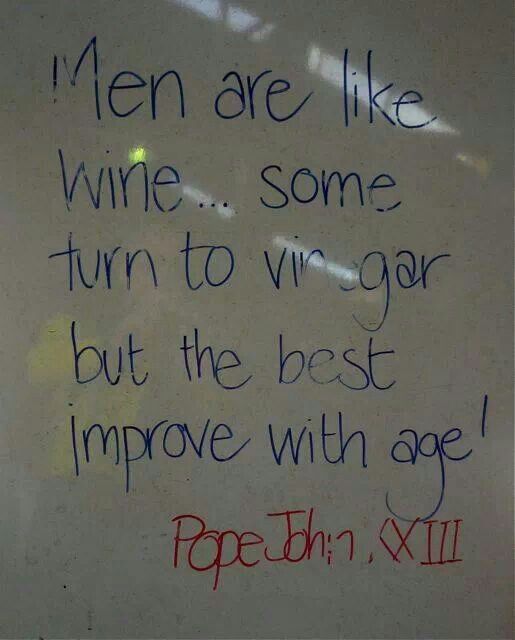 Men are like
Wine... some
turn to vinegar
but the best
improve with age!
Pope John XXIII